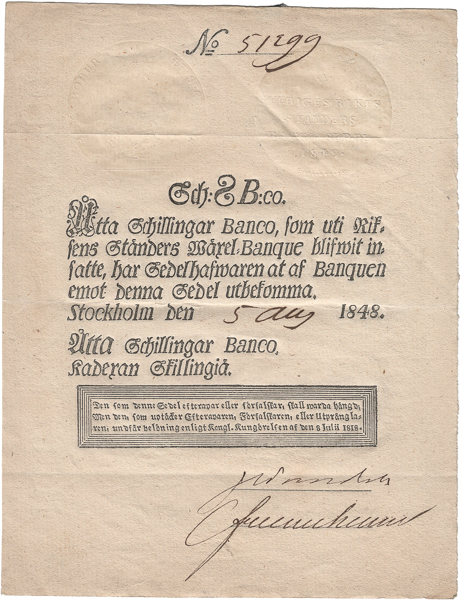 No 51299
Sch: 8 B:co.
Åtta Schillingar Banco, som uti Rik-
sens Ständers Wäxel-Banque blifwit in-
satte, har Sedelhafwaren at af Banquen
emot denna Sedel utbekomma.
Stockholm den 5 Aug 1848.
Åtta Schillingar Banco.
Kadexan Skillingiä.
Den som denne Sedel efterapar eller förfalskar, skall warda hängd;
Men den, som uptäcker Efteraparen, Förfalskaren, eller Utprångla-
ren, undfår belöning enligt Kongl. Kungörelsen af den 8 Julii 1818.